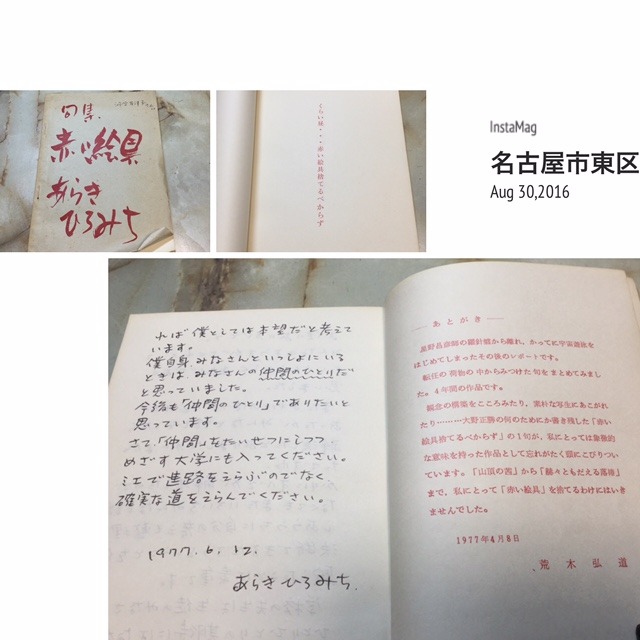 句集
赤い絵具
あらき
ひろみち
くらい昼・・・・赤い絵具捨てるべからず
InstaMag
名古屋市東区
Aug 30,2016
れば僕としては本望だと考えて
います。
僕自身、みなさんといっしょにいる
ときは みなさんの仲間のひとりだ
と思っていました。
今後も「仲間のひとり」でありたいと
思っています。
さて「仲間」をたいせつにしつつ
めざす大学にも入ってください。
ミエで進路をえらぶのでなく
確実な道をえらんでください。
1977. 6. 12.
あらきひろみち
── あとがき ──
星野昌彦師の羅針盤から離れ、かってに宇宙遊泳を
はじめてしまったその後のレポートです。
転任の荷物の中からみつけた句をまとめてみまし
た。4年間の作品です。
観念の構築をこころみたり、素朴な写生にあこがれ
たり………大野正勝の何のためにか書き残した「赤い
絵具捨てるべからず」の1句が、私にとっては象徴的
な意味を持った作品として忘れがたく頭にこびりつい
ています。「山頂の茜」から「赫々ともだえる落椿」
まで、私にとって「赤い絵具」を捨てるわけにはいき
ませんでした。
1977年4月8日
荒木弘道